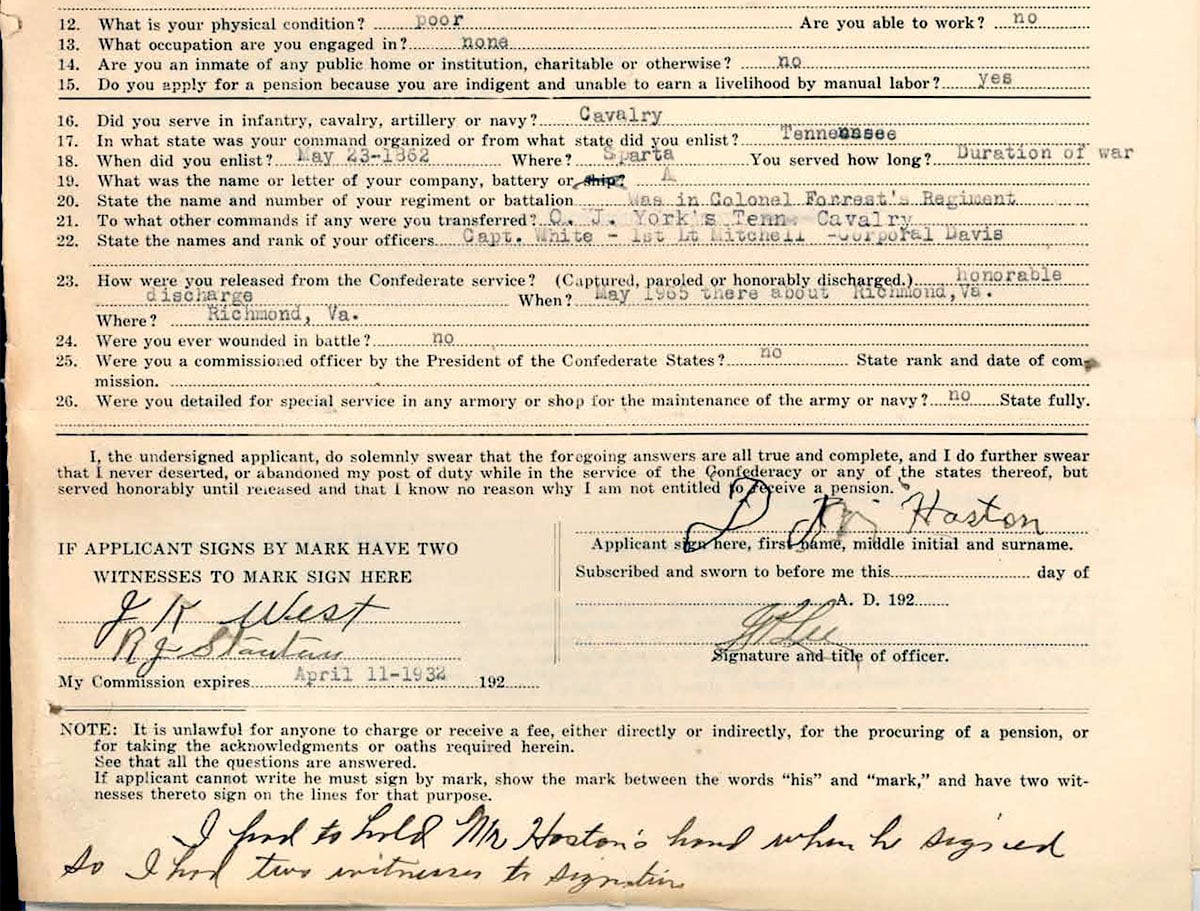 12. What is your physical condition? poor Are you able to work? no
13. What occupation are you engaged in? none
14. Are you an inmate of any public home or institution, charitable or otherwise? no
15. Do you apply for a pension because you are indigent and unable to earn a livelihood by manual labor? yes
16. Did you serve in infantry, cavalry, artillery or navy? Cavalry
17. In what state was your command organized or from what state did you enlist?
18. When did you enlist? May 23-1862 Where? Sparta You served how long? Duration of war
19. What was the name or letter of your company, battery or ship? A
20. State the name and number of your regiment or battalion Was in Colonel Forrest's Regiment
21. To what other commands if any were you transferred? O. J. York's Tenn Cavalry
22. State the names and rank of your officers Capt. White - 1st Lt Mitchell -Corporal Davis
23. How were you released from the Confederate service? (Captured, paroled or honorably discharged.) honorable
discharge When? May 1965 there about Richmond,Va.
Where? Richmond, Va.
24. Were you ever wounded in battle? no
25. Were you a commissioned officer by the President of the Confederate States? no State rank and date of com-
mission.
26. Were you detailed for special service in any armory or shop for the maintenance of the army or navy? no State fully.
I, the undersigned applicant, do solemnly swear that the foregoing answers are all true and complete, and I do further swear
that I never deserted, or abandoned my post of duty while in the service of the Confederacy or any of the states thereof, but
served honorably until released and that I know no reason why I am not entitled to receive a pension.
D Haston
Applicant sign here, first name, middle initial and surname.
IF APPLICANT SIGNS BY MARK HAVE TWO
WITNESSES TO MARK SIGN HERE
J K West
R J Stanton
My Commission expires April 11-1932 192
Subscribed and sworn to before me this day of
A. D. 192
Lee
Signature and title of officer.
NOTE: It is unlawful for anyone to charge or receive a fee, either directly or indirectly, for the procuring of a pension, or
for taking the acknowledgments or oaths required herein.
See that all the questions are answered.
If applicant cannot write he must sign by mark, show the mark between the words “his” and “mark,” and have two wit-
nesses thereto sign on the lines for that purpose.
I had to hold Mr Haston's hand when he signed
so I had two witnesses to signature